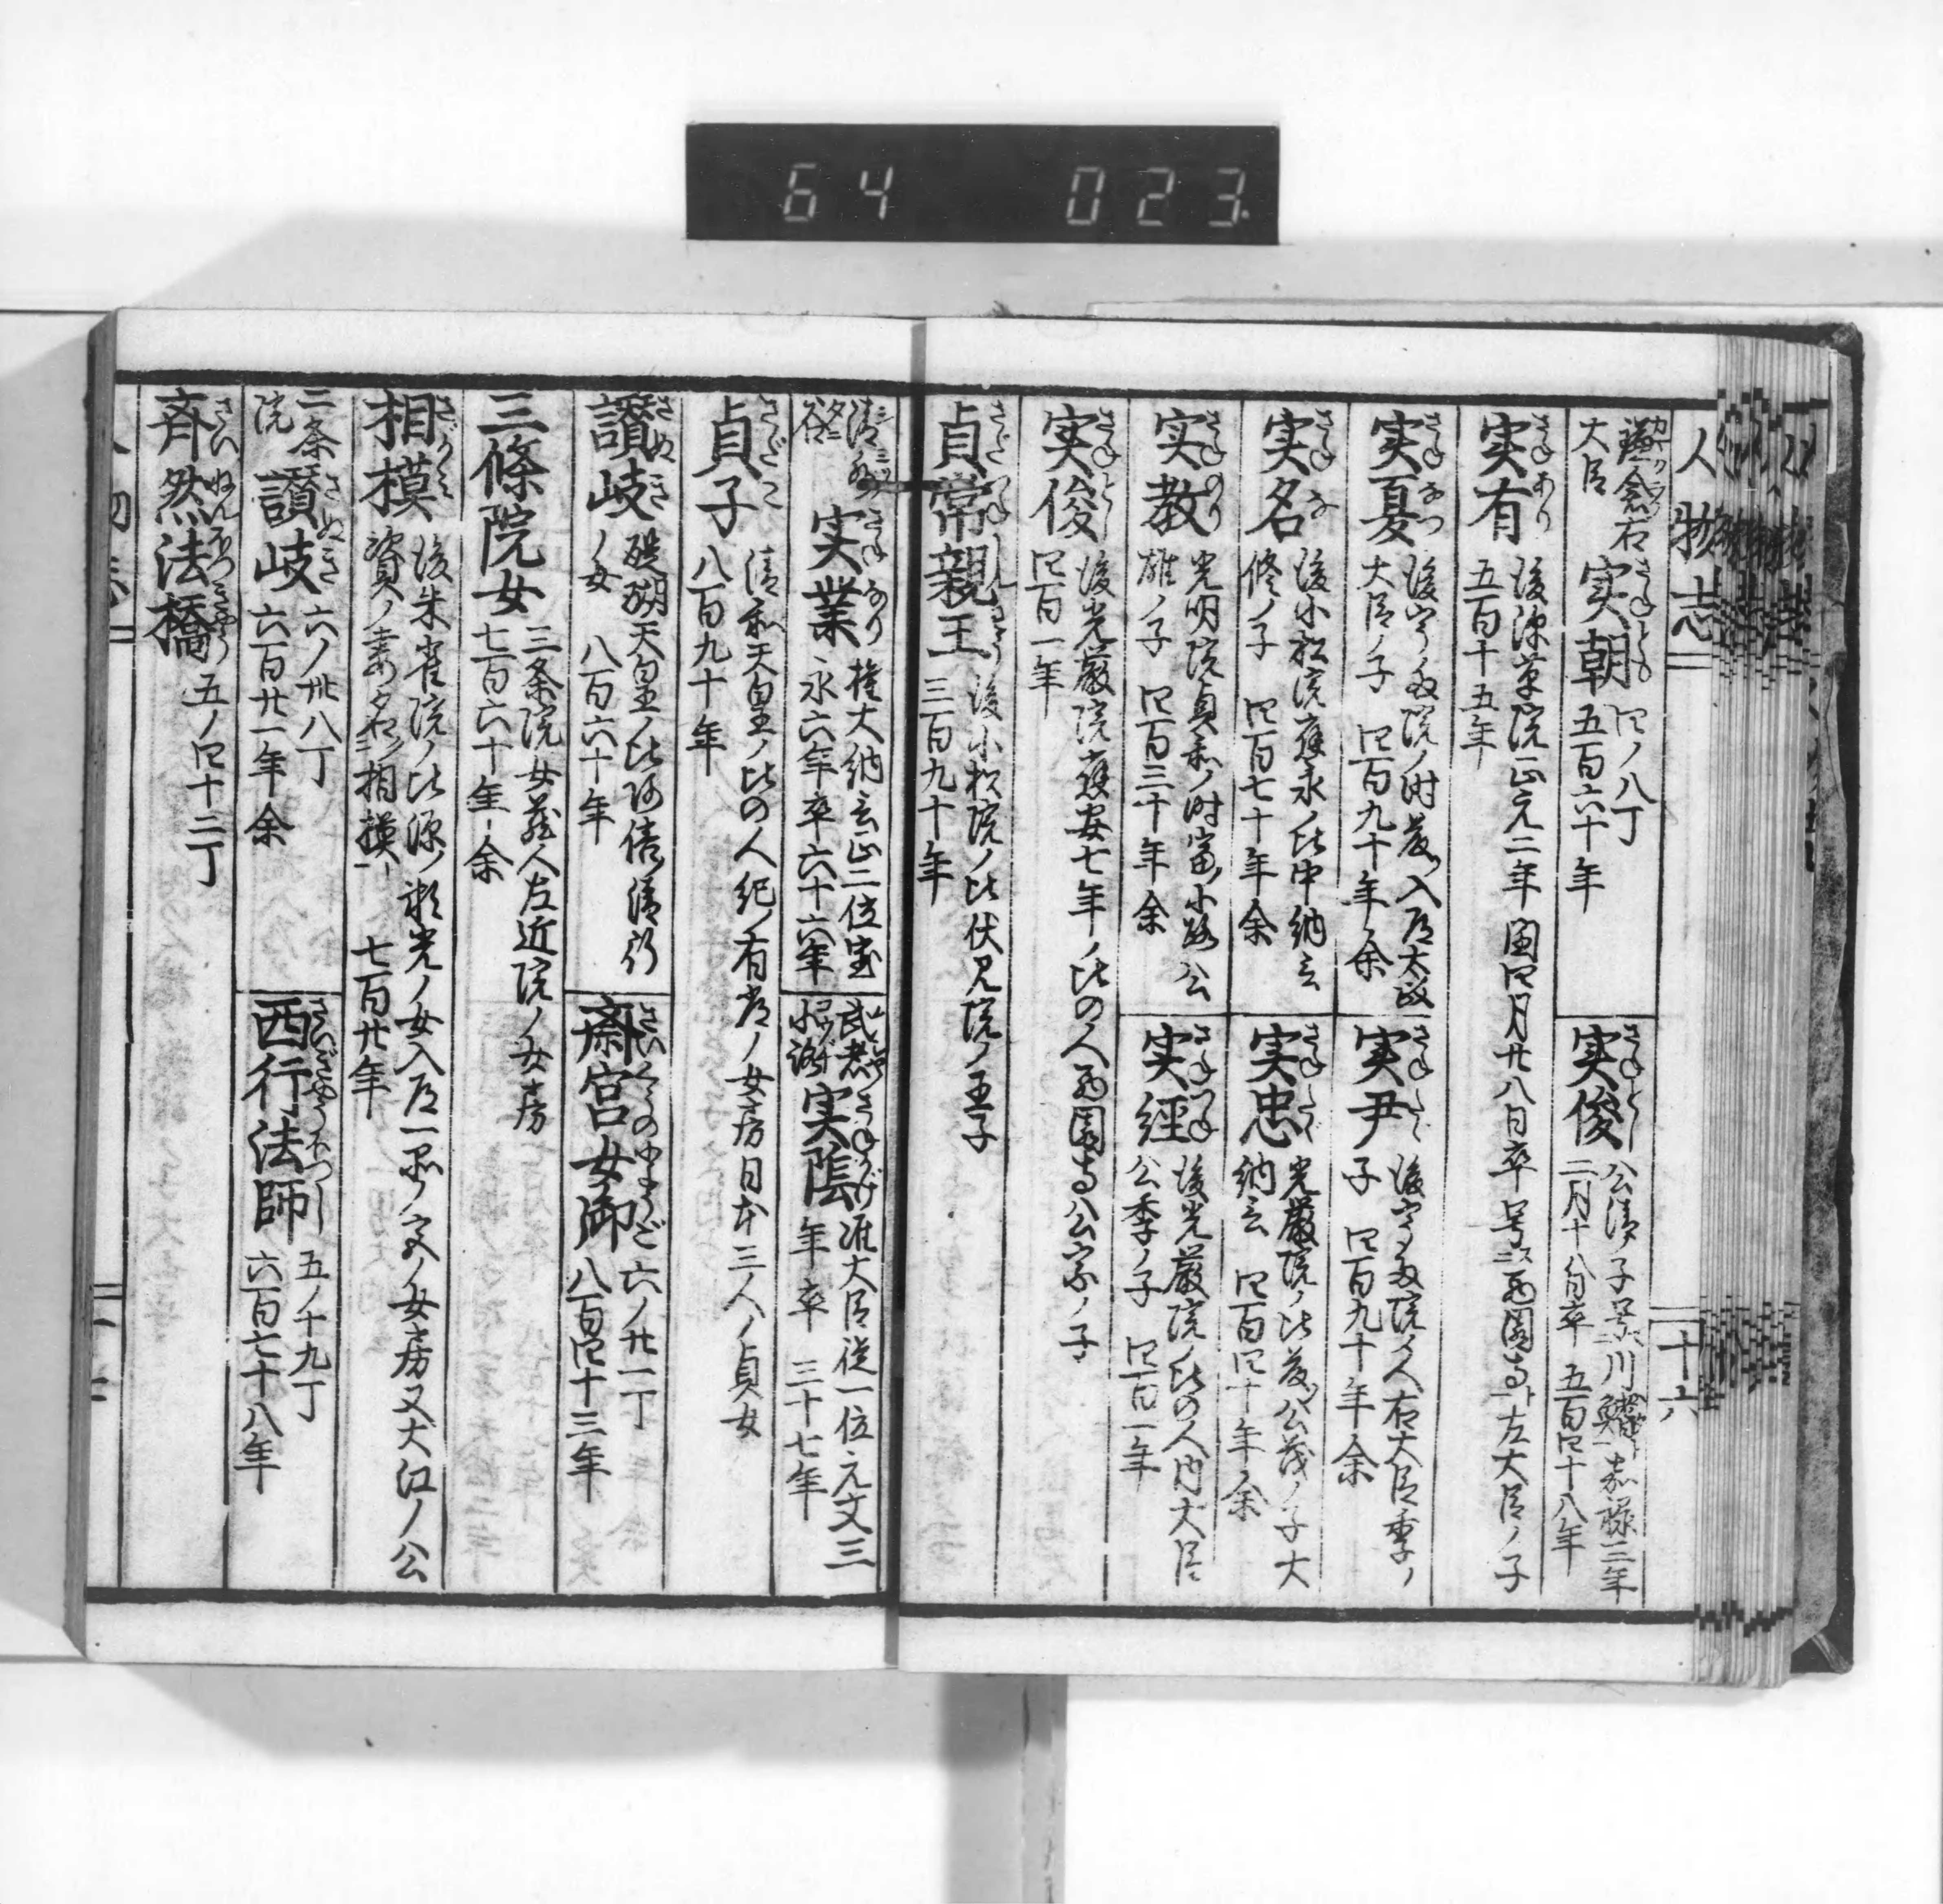 64 023
人物志
十六
鎌倉右大臣
実朝 さねとも
四ノ八丁
五百六十年
実俊 さねとし
公清ノ子号川鰭嘉禄三年
二月十八日卒 五百四十八年
実有 さねあり
後深草院正元二年閏四月廿八日卒 号西園寺左大臣ノ子
五百十五年
実夏 さねなつ
大臣ノ子 四百九十年余
実尹 さねただ
後宇多院ノ人右大臣季ノ
子 四百九十年余
実名 さねな
後小松院應永ノ比中納言
修ノ子 四百七十年余
実忠 さねただ
光厳院ノ比公茂ノ子大
納言 四百四十年余
実教 さねのり
光明院貞和ノ時富小路公
雄ノ子 四百三十年余
実經 さねつね
後光厳院ノ比の人内大臣
公季ノ子 四百一年
実俊 さねとし
後光厳院應安七年ノ比の人西園寺公宗ノ子
四百一年
貞常親王
後小松院ノ比伏見院ノ王子
三百九十年
清水谷
実業 さねなり
権大納言正二位宝
永六年卒六十六年
武者小路
実蔭 さねかげ
准大臣従一位元文三
年卒 三十七年
貞子 さだこ
清和天皇ノ比の人紀ノ有常ノ女房日本三人ノ貞女
八百九十年
讃岐 さぬき
醍醐天皇ノ比阿倍清行
ノ女 八百六十年
斎宮女御
六ノ廿一丁
八百四十三年
三條院女
三条院女蔵人左近院ノ女房
七百六十年余
相模 さがみ
後朱雀院ノ比源ノ頼光ノ女入道一品ノ宮ノ女房又大江ノ公
資ノ妻名相模 七百廿年
二条院
讃岐 さぬき
六ノ卅八丁
六百廿一年余
西行法師
五ノ十九丁
六百七十八年
斉然法橋
五ノ四十二丁